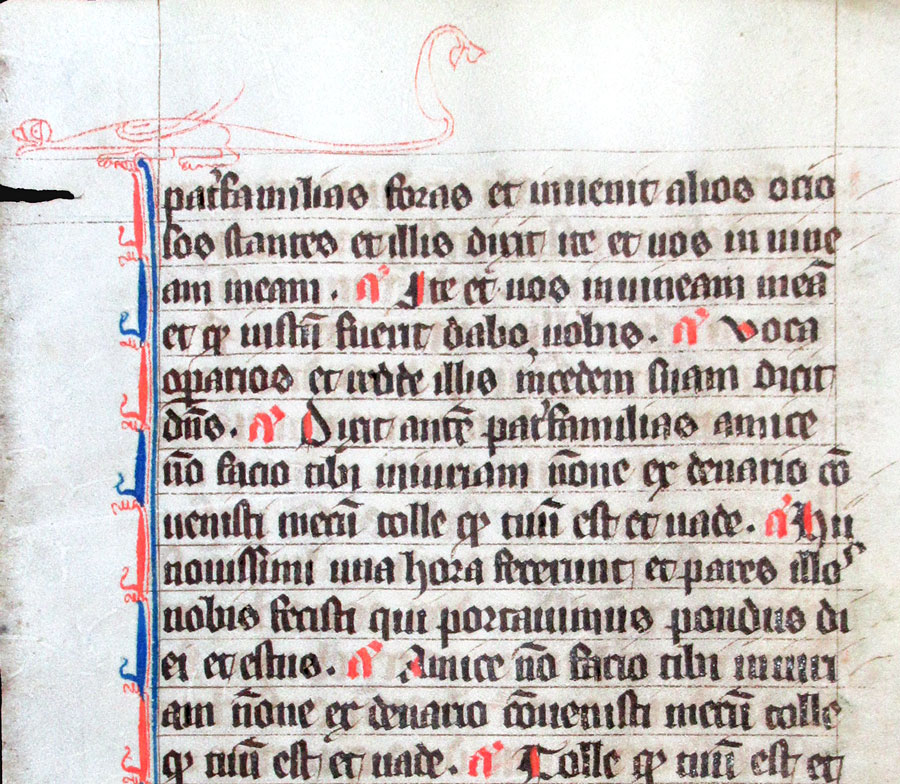 pat᷑familias foras et inuenit alios ocio
sos stantes et illis dixit ite et uos in uine
am meam. a᷑ Ite et uos in uineam meā
et qꝫ iustū fuerit dabo uobis. a᷑ voca
oꝑarios et redde illis mcedem suam dicit
dn̄s. a᷑ Dixit autē pat᷑familias amice
nō facio tibi iniuriam nōne ex denario cō
uenisti mecū tolle qꝫ tuū est et uade. a᷑ Hii
nouissimi una hora fecerunt et pares illoꝝ
nobis fecisti qui portauimus pondus di
ei et estus. a᷑ Amice nō facio tibi iniuri
am nōne ex denario cōuenisti mecū tolle
qꝫ tuū est et uade. a᷑ Tolle qꝫ tuū est et